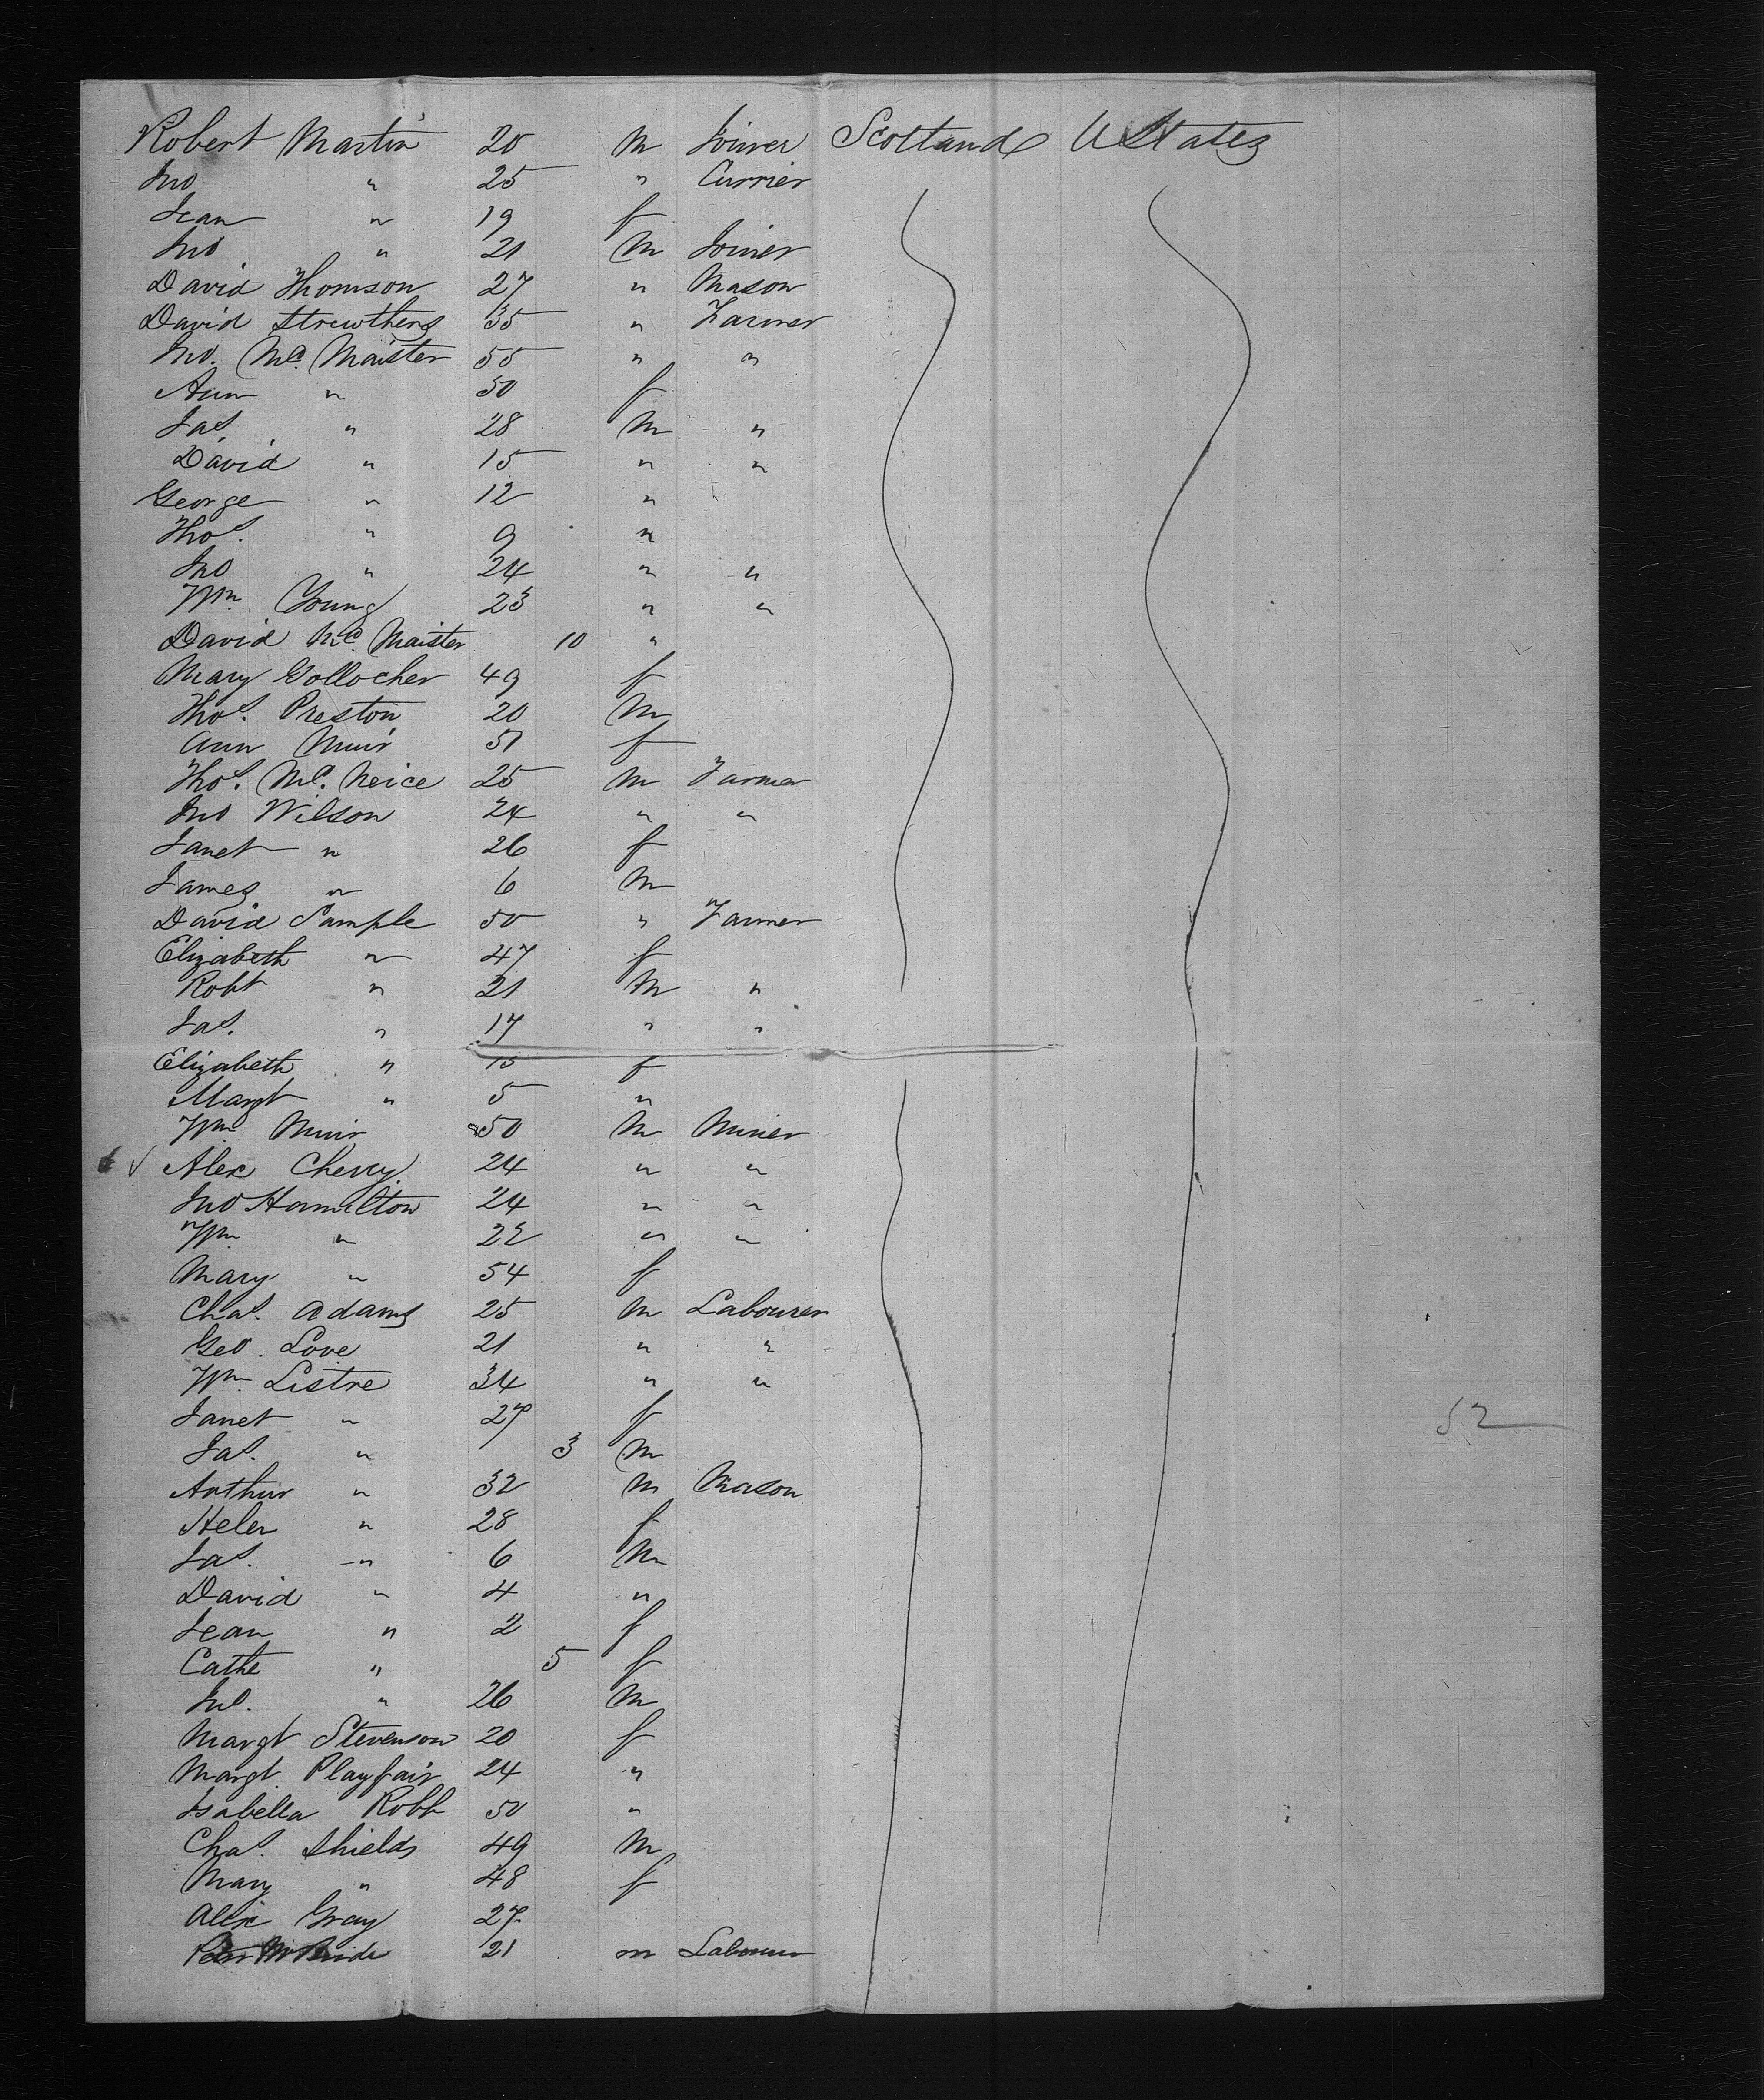 Robert Martin 20 M Joiner Scotland U States
Jno " 25 " Currier
Jean " 19 f
Jno " 21 M Joiner
David Thomson 27 " Mason
David Strewthers 35 " Farmer
Jno. Mc. Maister 55 " "
Ann " 50 f
Jas. " 28 M "
David " 15 " "
George " 12 "
Thos. " 9 "
Jno " 24 " "
Wm. Young 23 " "
David Mc. Maister 10 "
Mary Gollocher 49 f
Thos. Preston 20 M
Ann Muir 51 f
Thos. Mc. Neice 25 M Farmer
Jno Wilson 24 " "
Janet " 26 f
James " 6 M
David Sample 50 " Farmer
Elizabeth " 47 f
Robt " 21 M "
Jas. " 17 " "
Elizabeth " 15 f
Margt " 5 "
Wm. Muir 50 M Miner
✓ Alex 24 " "
Jno Hamilton 24 " "
Wm. " 22 " "
Mary " 54 f
Chas. Adams 25 M Labourer
Geo. Love 21 " "
Wm. Listre 34 " "
Janet " 27 f 52
Jas. " 3 M
Arthur " 32 M Mason
Helen " 28 f
Jas. " 6 M
David " 4 "
Jean " 2 f
Cathe " 5 f
Jno. " 26 M
Margt Stevenson 20 f
Margt. Playfair 24 "
Isabella Robb 50 "
Chas. Shields 49 M
Mary " 48 f
Alex Gray 27
Peter McBride 21 m Labourer